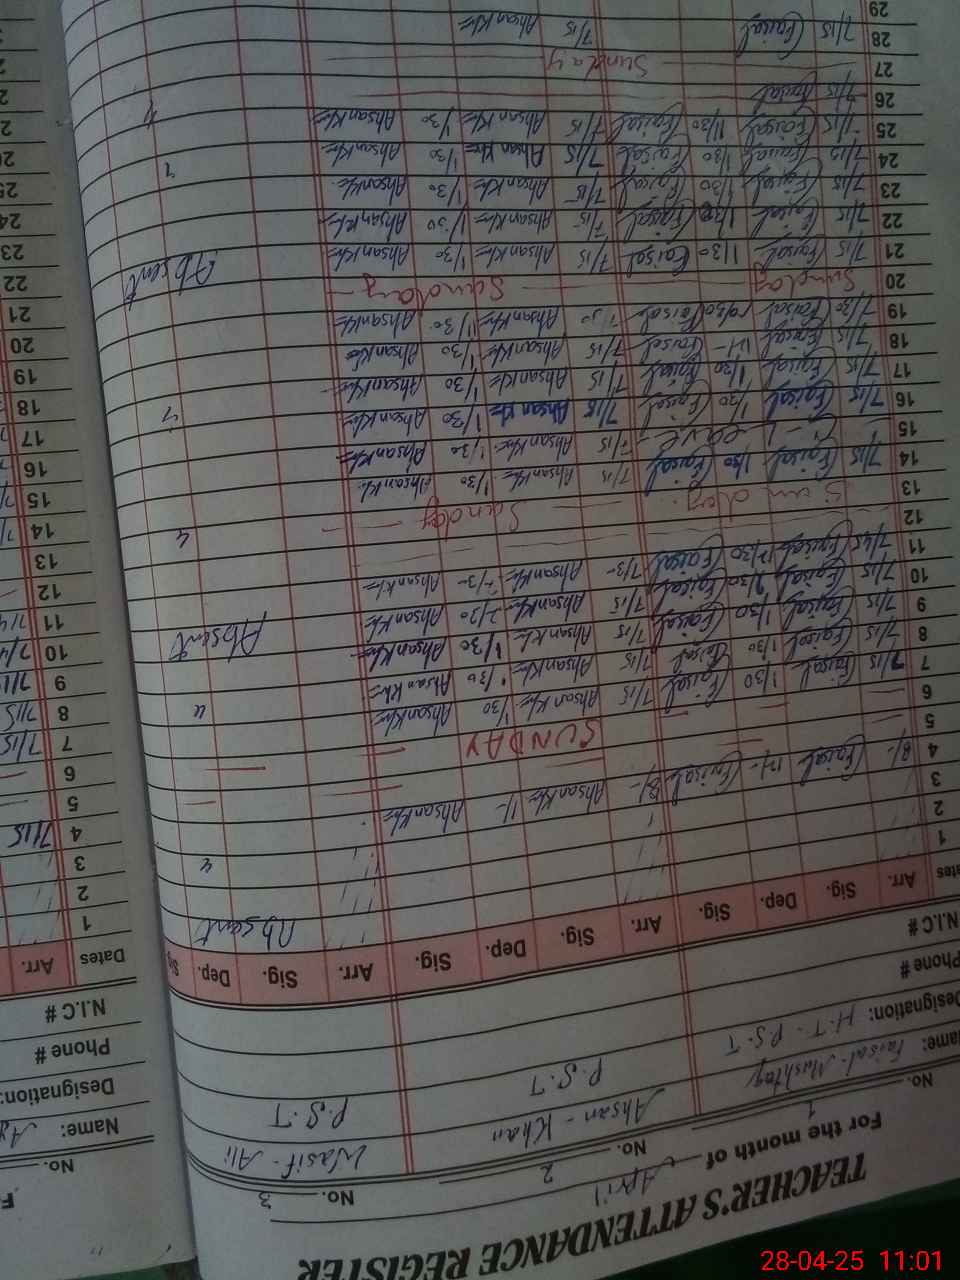 TEACHER'S ATTENDANCE REGISTER
For the month of April
No. 1 No. 2 No. 3
Name: Faisal Mushtaq Ahsan - Khan Wasif - Ali
Designation: H.T - P.S.T P.S.T P.S.T
Phone #
N.I.C #
Dates Arr. Sig. Dep. Sig. Arr. Sig. Dep. Sig. Arr. Sig. Dep. Sig
1 Absent
2
3
4 8/- Faisal 12/- Faisal 8/- Ahsan Kh Ahsan Kh
5
6 SUNDAY
7 7/15 Faisal 1/30 Faisal 7/15 Ahsan Kh 1/30 Ahsan Kh
8 7/15 Faisal 1/30 Faisal 7/15 Ahsan Kh 1/30 Ahsan Kh
9 7/15 Faisal 1/30 Faisal 7/15 Ahsan Kh 1/30 Ahsan Kh Absent
10 7/15 Faisal Faisal 7/15 Ahsan Kh Ahsan Kh
11 7/45 Faisal 12/30 Faisal Ahsan Kh Ahsan Kh
12
13 Sunday Sunday
14 7/15 Faisal 1/30 Faisal 7/15 Ahsan Kh 1/30 Ahsan Kh
15 Leave 7/15 Ahsan Kh 1/30 Ahsan Kh
16 7/15 Faisal 1/30 Faisal 7/15 Ahsan Kh 1/30 Ahsan Kh
17 7/15 Faisal 1/30 Faisal 7/15 Ahsan Kh 1/30 Ahsan Kh
18 7/15 Faisal 12/- Faisal 7/15 Ahsan Kh 1/30 Ahsan Kh
19 7/30 Faisal Faisal Ahsan Kh 1/30 Ahsan Kh
20 Sunday Sunday
21 7/15 Faisal 1/30 Faisal 7/15 Ahsan Kh 1/30 Ahsan Kh Absent
22 7/15 Faisal 1/30 Faisal 7/15 Ahsan Kh 1/30 Ahsan Kh
23 7/15 Faisal 1/30 Faisal 7/15 Ahsan Kh 1/30 Ahsan Kh
24 7/15 Faisal 1/30 Faisal 7/15 Ahsan Kh 1/30 Ahsan Kh
25 7/15 Faisal 11/30 Faisal 7/15 Ahsan Kh 1/30 Ahsan Kh
26 7/15 Faisal
27 Sunday
28 7/15 Faisal 7/15 Ahsan Kh
29
No.
Name:
Designation:
Phone #
N.I.C #
Dates Arr.
1
2
3
4 7/15
5
6
7 7/15
8 7/15
9
10
11
12
13
14
15
16
17
18
19
20
21
22
23
24
25
28-04-25 11:01